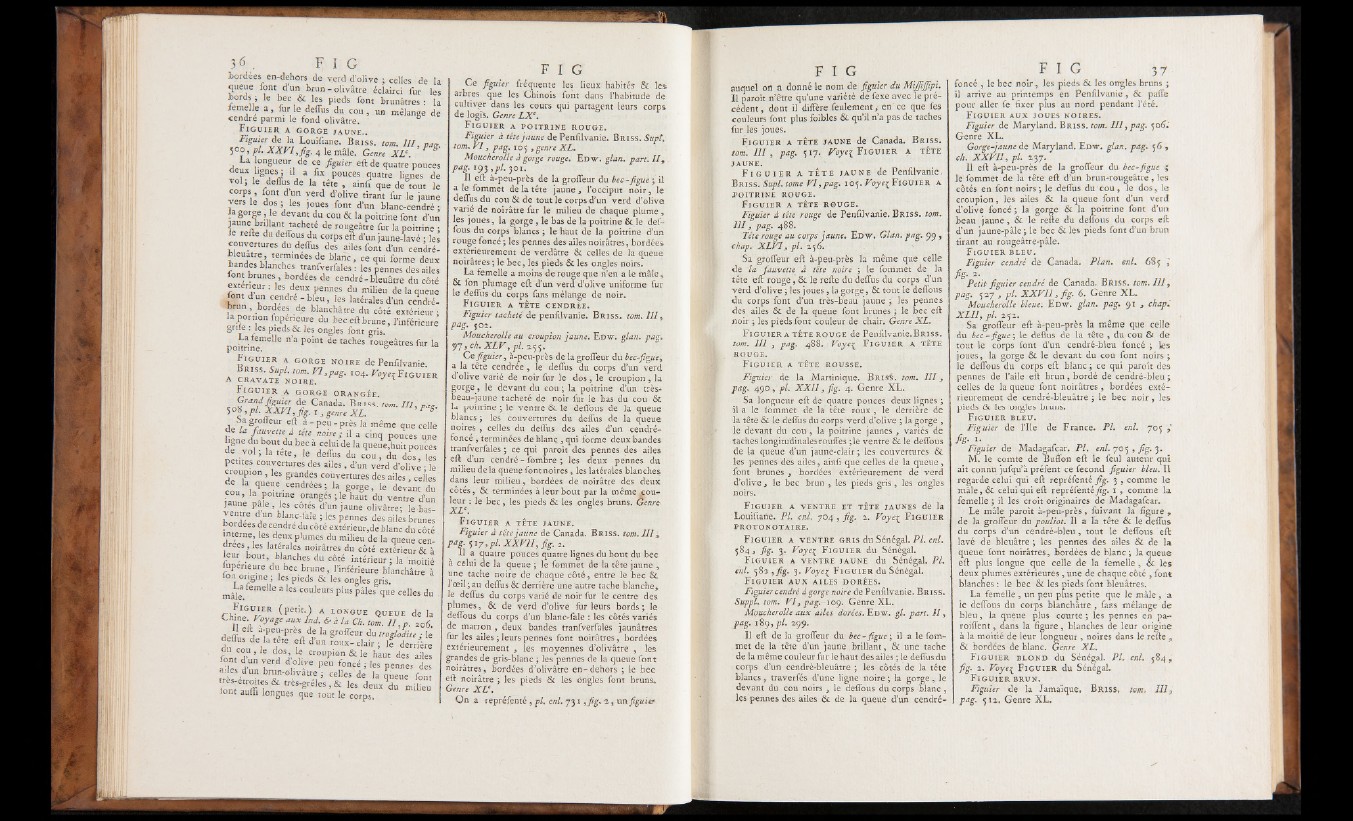 36. F I G
bordées en-dehors de verd d'olive ; celles de la
queue sont d'un brun-olivâtre éclairci sur les
bords ; le bec & les pieds sont brunâtres : la
femelle a, sur le dessus du cou, un mélange de
cendré parmi le fond olivâtre.
FIGUIER A GORGE JAUNE.
Figuier de la Louisiane. BRISS. tom. III, pag.
500, pl. XXVI, fig. 4 le mâle. Genre XLe.
La longueur de ce figuier est de quatre pouces
deux lignes; il a six pouces quatre lignes de
vol; le dessus de la tête, ainsi que de tout le
corps, sont d'un verd d'olive tirant sur le jaune
vers le dos; les joues sont d'un blanc-cendré ;
la gorge, le devant du cou & la poitrine sont d'un
jaune brillant tacheté de rougeâtre sur la poitrine ;
le reste du dessous du corps est d'un jaune-lavé ; les
couvertures du dessus des ailes sont d'un cendré-
bleuâtre, terminées de blanc, ce qui forme deux
bandes blanches transversales : les pennes des ailes
sont brunes, bordées de cendré-bleuâtre du côté
extérieur : les deux pennes du milieu de la queue
sont d'un cendré-bleu, les latérales d'un cendré-
brun, bordées de blanchâtre du côté extérieur ;
la portion supérieure du bec est brune, l'inférieure
grise : les pieds & les ongles sont gris.
La femelle n'a point de taches rougeâtres sur la
poitrine.
FIGUIER A GORGE NOIRE de Pensilvanie.
BRISS. Supl. tom. VI, pag. 104. Voyez FIGUIER
A CRAVATE NOIRE.
FIGUIER A GORGE ORANGÉE.
Grand figuier de Canada. BRISS. tom. III, pag.
508, pl. XXVI, fig. 1, genre XL.
Sa grosseur est à-peu-près la même que celle
de la fauvette à tête noire ; il a cinq pouces une
ligne du bout du bec à celui de la queue, huit pouces
de vol ; la tête, le dessus du cou, du dos, les
petites couvertures des ailes, d'un verd d'olive ; le
croupion, les grandes couvertures des ailes, celles
de la queue cendrées ; la gorge, le devant du
cou, la poitrine orangés ; le haut du ventre d'un
jaune pâle, les côtés d'un jaune olivâtre; le bas-
ventre d'un blanc-sale ; les pennes des ailes brunes
bordées de cendré du côté extérieur, de blanc du côté
interne, les deux plumes du milieu de la queue cen-
drées, les latérales noirâtres du côté extérieur & à
leur bout, blanches du côté intérieur ; la moitié
supérieure du bec brune, l'inférieure blanchâtre à
son origine ; les pieds & les ongles gris.
La femelle a les couleurs plus pâles que celles du
mâle.
FIGUIER (petit.) A LONGUE QUEUE de la
Chine. Voyage aux Ind. & à la Ch. tom. II, p. 206.
Il est à-peu-près de la grosseur du troglodite ; le
dessus de la tête est d'un roux-clair ; le derrière
du cou, le dos, le croupion & le haut des ailes
sont d'un verd d'olive peu foncé ; les pennes des
ailes d'un brun-olivâtre ; celles de la queue sont
très-étroites & très-grêles, & les deux du milieu
sont aussi longues que tout le corps.
F I G
Ce figuier fréquente les lieux habités & les
arbres que les Chinois sont dans l'habitude de
cultiver dans les cours qui partagent leurs corps
de logis. Genre LXe.
FIGUIER A POITRINE ROUGE.
Figuier à tête jaune de Pensilvanie. BRISS. Supl.
tom. VI, pag. 105, genre XL.
Moucherolle à gorge rouge. EDW. glan. part. II,
pag. 193, pl. 301.
Il est à-peu-près de la grosseur du bec-figue ; il
a le sommet de la tête jaune, l'occiput noir, le
dessus du cou & de tout le corps d'un verd d'olive
varié de noirâtre sur le milieu de chaque plume,
les joues, la gorge, le bas de la poitrine & le des-
sous du corps blancs ; le haut de la poitrine d'un
rouge foncé ; les pennes des ailes noirâtres, bordées
extérieurement de verdâtre & celles de la queue
noirâtres ; le bec, les pieds & les ongles noirs.
La femelle a moins de rouge que n'en a le mâle,
& son plumage est d'un verd d'olive uniforme sur
le dessus du corps sans mélange de noir.
FIGUIER A TÊTE CENDRÉE.
Figuier tacheté de pensilvanie. BRISS. tom. III,
pag. 502.
Moucherolle au croupion jaune. EDW. glan. pag.
97, ch. XLV, pl. 255.
Ce figuier, à-peu-près de la grosseur du bec-figue,
a la tête cendrée, le dessus du corps d'un verd
d'olive varié de noir sur le dos, le croupion, la
gorge, le devant du cou ; la poitrine d'un très-
beau-jaune tacheté de noir sur le bas du cou &
la poitrine ; le ventre & le dessous de la queue
blancs ; les couvertures du dessus de la queue
noires, celles du dessus des ailes d'un cendré-
foncé, terminées de blanc, qui forme deux bandes
transversales ; ce qui paroît des pennes des ailes
est d'un cendré-sombre ; les deux pennes du
milieu de la queue sont noires, les latérales blanches
dans leur milieu, bordées de noirâtre des deux
côtés, & terminées à leur bout par la même cou-
leur : le bec, les pieds & les ongles bruns. Genre
XLe.
FIGUIER A TÊTE JAUNE.
Figuier à tête jaune de Canada. BRISS. tom. III,
pag. 517, pl. XXVII, fig. 2.
Il a quatre pouces quatre lignes du bout du bec
à celui de la queue ; le sommet de la tête jaune,
une tache noire de chaque côté, entre le bec &
l'œil ; au dessus & derrière une autre tache blanche,
le dessus du corps varié de noir sur le centre des
plumes, & de verd d'olive sur leurs bords ; le
dessous du corps d'un blanc-sale : les côtés variés
de marron, deux bandes transversales jaunâtres
sur les ailes ; leurs pennes sont noirâtres, bordées
extérieurement, les moyennes d'olivâtre, les
grandes de gris-blanc ; les pennes de la queue sont
noirâtres, bordées d'olivâtre en-dehors ; le bec
est noirâtre ; les pieds & les ongles sont bruns.
Genre XLe.
On a représenté, pl. enl. 731, fig. 2, un figuier
F I G
auquel on a donné le nom de figuier du Mississipi.
Il paroît n'être qu'une variété de sexe avec le pré-
cédent, dont il diffère seulement, en ce que ses
couleurs sont plus foibles & qu'il n'a pas de taches
sur les joues.
FIGUIER A TÊTE JAUNE de Canada. BRISS.
tom. III, pag. 517. Voyez FIGUIER A TÊTE
JAUNE.
FIGUIER A TÊTE JAUNE de Pensilvanie.
BRISS. Supl. tome VI, pag. 105. Voyez FIGUIER A
POITRINE ROUGE.
FIGUIER A TÊTE ROUGE.
Figuier à tête rouge de Pensilvanie. BRISS. tom.
III, pag. 488.
Tête rouge au corps jaune. EDW. Glan. pag. 99,
chap. XLVI, pl. 256.
Sa grosseur est à-peu-près la même que celle
de la fauvette à tête noire ; le sommet de la
tête est rouge, & le reste du dessus du corps d'un
verd d'olive ; les joues, la gorge, & tout le dessous
du corps sont d'un très-beau jaune ; les pennes
des ailes & de la queue sont brunes ; le bec est
noir ; les pieds sont couleur de chair. Genre XL.
FIGUIER A TÊTE ROUGE de Pensilvanie. BRISS.
tom. III, pag. 488. Voyez FIGUIER A TÊTE
ROUGE.
FIGUIER A TÊTE ROUSSE.
Figuier de la Martinique. BRISS. tom. III,
pag. 490, pl. XXII, fig. 4. Genre XL.
Sa longueur est de quatre pouces deux lignes ;
il a le sommet de la tête roux, le derrière de
la tête & le dessus du corps verd d'olive ; la gorge,
le devant du cou, la poitrine jaunes, variés de
taches longitudinales rousses ; le ventre & le dessous
de la queue d'un jaune-clair ; les couvertures &
les pennes des ailes, ainsi que celles de la queue,
sont brunes, bordées extérieurement de verd
d'olive, le bec brun, les pieds gris, les ongles
noirs.
FIGUIER A VENTRE ET TÊTE JAUNES de la
Louisiane. Pl. enl. 704, fig. 2. Voyez FIGUIER
PROTONOTAIRE.
FIGUIER A VENTRE GRIS du Sénégal. Pl. enl.
584, fig. 3. Voyez FIGUIER du Sénégal.
FIGUIER A VENTRE JAUNE du Sénégal. Pl.
enl. 582, fig. 3. Voyez FIGUIER du Sénégal.
FIGUIER AUX AILES DORÉES.
Figuier cendré à gorge noire de Pensilvanie. BRISS.
Suppl. tom. VI, pag. 109. Genre XL.
Moucherolle aux ailes dorées. EDW. gl. part. II,
pag. 189, pl. 299.
Il est de la grosseur du bec-figue ; il a le som-
met de la tête d'un jaune brillant, & une tache
de la même couleur sur le haut des ailes ; le dessus du
corps d'un cendré-bleuâtre ; les côtés de la tête
blancs, traversés d'une ligne noire ; la gorge, le
devant du cou noirs, le dessous du corps blanc,
les pennes des ailes & de la queue d'un cendré-
F I G 37
foncé, le bec noir, les pieds & les ongles bruns ;
il arrive au printemps en Pensilvanie, & passe
pour aller se fixer plus au nord pendant l'été.
FIGUIER AUX JOUES NOIRES.
Figuier de Maryland. BRISS. tom. III, pag. 506.
Genre XL.
Gorge-jaune de Maryland. EDW. glan. pag. 56,
ch. XXVII, pl. 237.
Il est à-peu-près de la grosseur du bec-figue ;
le sommet de la tête est d'un brun-rougeâtre, les
côtés en sont noirs ; le dessus du cou, le dos, le
croupion, les ailes & la queue sont d'un verd
d'olive foncé ; la gorge & la poitrine sont d'un
beau jaune, & le reste du dessous du corps est
d'un jaune-pâle ; le bec & les pieds sont d'un brun
tirant au rougeâtre-pâle.
FIGUIER BLEU.
Figuier cendré de Canada. Plan. enl. 685,
fig. 2.
Petit figuier cendré de Canada. BRISS. tom. III,
pag. 527, pl. XXVII, fig. 6. Genre XL.
Moucherolle bleue. EDW. glan. pag. 91, chap.
XLII, pl. 252.
Sa grosseur est à-peu-près la même que celle
du bec-figue ; le dessus de la tête, du cou & de
tout le corps sont d'un cendré-bleu foncé ; les
joues, la gorge & le devant du cou sont noirs ;
le dessous du corps est blanc ; ce qui paroît des
pennes de l'aile est brun, bordé de cendré-bleu ;
celles de la queue sont noirâtres, bordées exté-
rieurement de cendré-bleuâtre ; le bec noir, les
pieds & les ongles bruns.
FIGUIER BLEU.
Figuier de l'Ile de France. Pl. enl. 705,
fig. 1.
Figuier de Madagascar. Pl. enl. 705, fig. 3.
M. le comte de Buffon est le seul auteur qui
ait connu jusqu'à présent ce second figuier bleu. Il
regarde celui qui est représenté fig. 3, comme le
mâle, & celui qui est représenté fig. 1, comme la
femelle ; il les croit originaires de Madagascar.
Le mâle paroît à-peu-près, suivant la figure,
de la grosseur du pouliot. Il a la tête & le dessus
du corps d'un cendré-bleu, tout le dessous est
lavé de bleuâtre ; les pennes des ailes & de la
queue sont noirâtres, bordées de blanc ; la queue
est plus longue que celle de la femelle, & les
deux plumes extérieures, une de chaque côté, sont
blanches : le bec & les pieds sont bleuâtres.
La femelle, un peu plus petite que le mâle, a
le dessous du corps blanchâtre, sans mélange de
bleu, la queue plus courte ; les pennes en pa-
roissent, dans la figure, blanches de leur origine
à la moitié de leur longueur, noires dans le reste,
& bordées de blanc. Genre XL.
FIGUIER BLOND du Sénégal. Pl. enl. 584,
fig. 2. Voyez FIGUIER du Sénégal.
FIGUIER BRUN.
Figuier de la Jamaïque. BRISS. tom. III,
pag. 512. Genre XL.